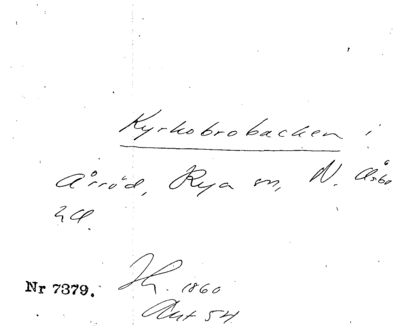 Kyrkobrobacken i
Årröd, Rya sn, N. Åsbo
hd.
Nr 7379. Jh. 1860
Akt 54